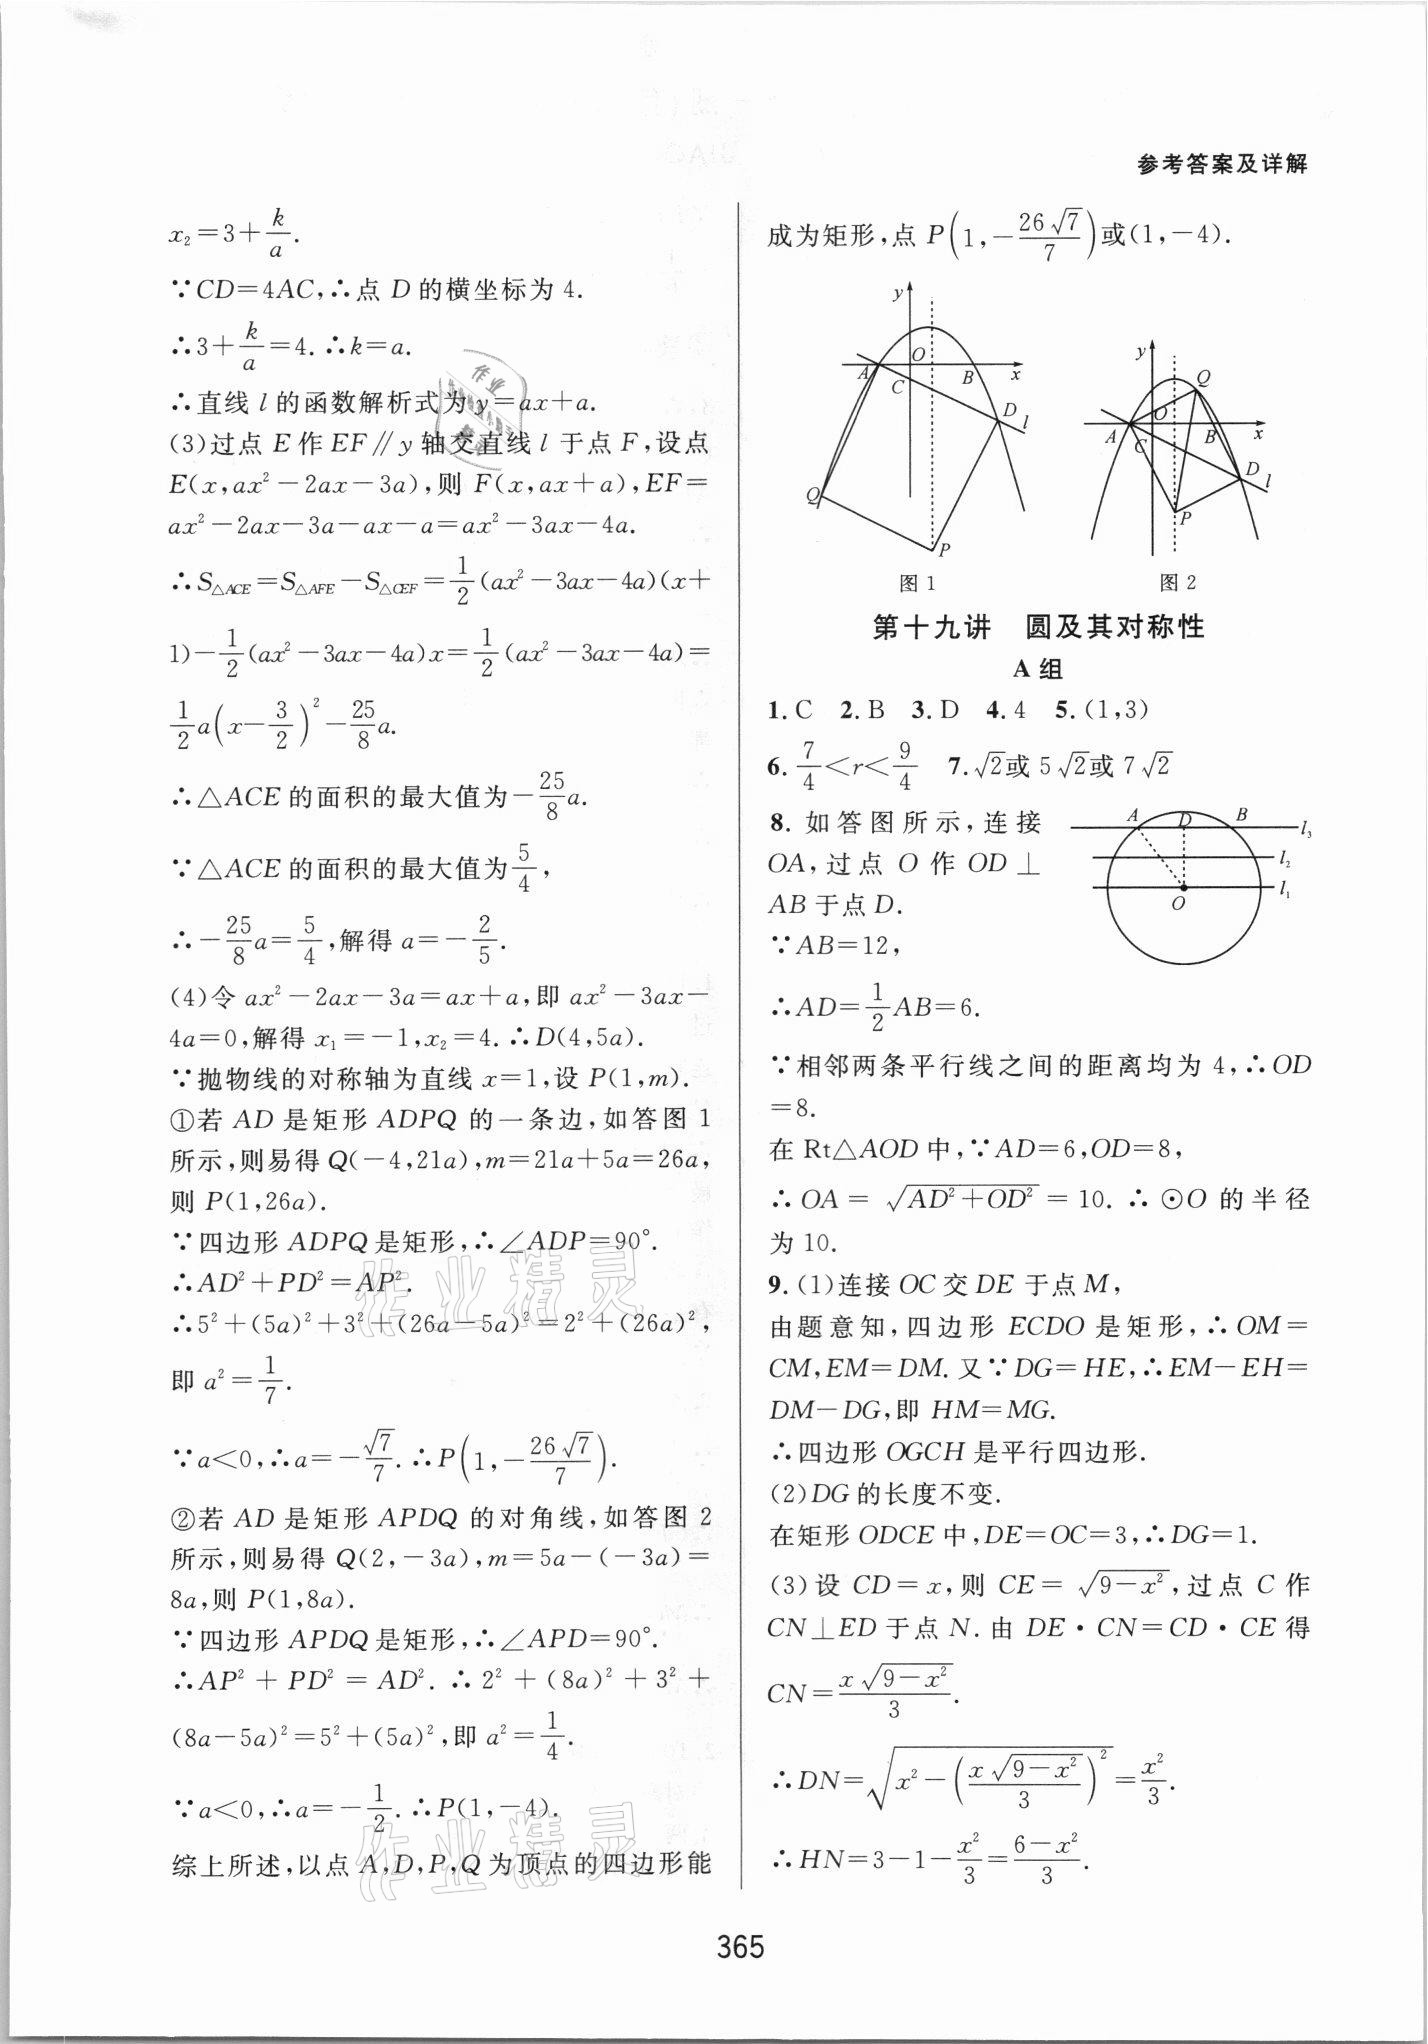 参考答案及详解
x₂=3+k/a.
∵CD=4AC,∴点 D 的横坐标为 4.
∴3+k/a=4.∴k=a.
∴直线 l 的函数解析式为 y=ax+a.
(3)过点 E 作 EF∥y 轴交直线 l 于点 F,设点
E(x,ax²-2ax-3a),则 F(x,ax+a),EF=
ax²-2ax-3a-ax-a=ax²-3ax-4a.
∴S△ACE=S△AFE-S△CEF=1/2(ax²-3ax-4a)(x+
1)-1/2(ax²-3ax-4a)x=1/2(ax²-3ax-4a)=
1/2a(x-3/2)²-25/8a.
∴△ACE 的面积的最大值为-25/8a.
∵△ACE 的面积的最大值为5/4,
∴-25/8a=5/4,解得 a=-2/5.
(4)令 ax²-2ax-3a=ax+a,即 ax²-3ax-
4a=0,解得 x₁=-1,x₂=4.∴D(4,5a).
∵抛物线的对称轴为直线 x=1,设 P(1,m).
①若 AD 是矩形 ADPQ 的一条边,如答图 1
所示,则易得 Q(-4,21a),m=21a+5a=26a,
则 P(1,26a).
∵四边形 ADPQ 是矩形,∴∠ADP=90°.
∴AD²+PD²=AP².
∴5²+(5a)²+3²+(26a-5a)²=2²+(26a)²,
即 a²=1/7.
∵a<0,∴a=-√7/7.∴P(1,-26√7/7).
②若 AD 是矩形 APDQ 的对角线,如答图 2
所示,则易得 Q(2,-3a),m=5a-(-3a)=
8a,则 P(1,8a).
∵四边形 APDQ 是矩形,∴∠APD=90°.
∴AP²+PD²=AD².∴2²+(8a)²+3²+
(8a-5a)²=5²+(5a)²,即 a²=1/4.
∵a<0,∴a=-1/2.∴P(1,-4).
综上所述,以点 A,D,P,Q 为顶点的四边形能
成为矩形,点 P(1,-26√7/7)或(1,-4).
y
O
A
C
B
x
D
l
Q
P
图 1
y
Q
O
A
C
B
x
D
l
P
图 2
第十九讲 圆及其对称性
A 组
1.C 2.B 3.D 4.4 5.(1,3)
6.7/4<r<9/4 7.√2或 5√2或 7√2
8.如答图所示,连接
OA,过点 O 作 OD⊥
AB 于点 D.
A D B l₃
l₂
l₁
O
∵AB=12,
∴AD=1/2AB=6.
∵相邻两条平行线之间的距离均为 4,∴OD
=8.
在 Rt△AOD 中,∵AD=6,OD=8,
∴OA=√(AD²+OD²)=10.∴⊙O 的半径
为 10.
9.(1)连接 OC 交 DE 于点 M,
由题意知,四边形 ECDO 是矩形,∴OM=
CM,EM=DM.又∵DG=HE,∴EM-EH=
DM-DG,即 HM=MG.
∴四边形 OGCH 是平行四边形.
(2)DG 的长度不变.
在矩形 ODCE 中,DE=OC=3,∴DG=1.
(3)设 CD=x,则 CE=√(9-x²),过点 C 作
CN⊥ED 于点 N.由 DE·CN=CD·CE 得
CN=x√(9-x²)/3.
∴DN=√(x²-(x√(9-x²)/3)²)=x²/3.
∴HN=3-1-x²/3=(6-x²)/3.
作业精灵
作业精灵
365